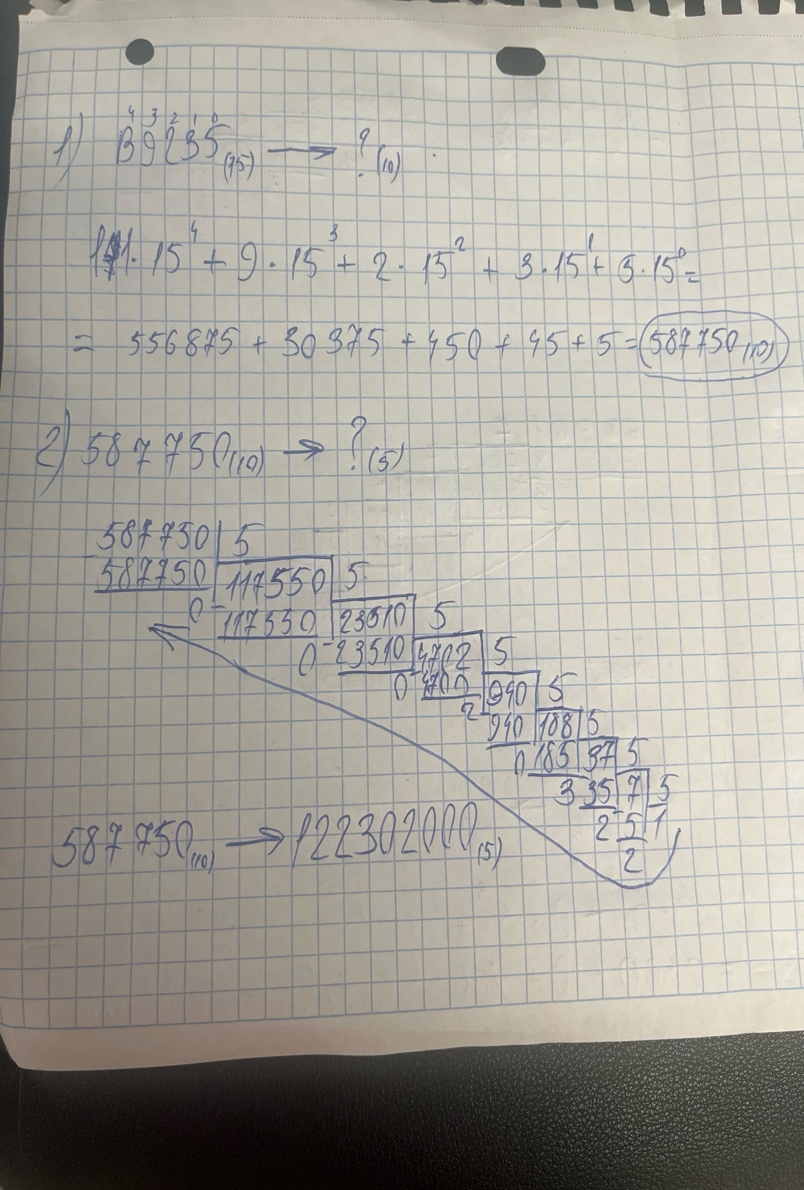 4 3 2 1 0
1) B9235(15) → ?(10)
11·15⁴ + 9·15³ + 2·15² + 3·15¹ + 5·15⁰ =
= 556875 + 30375 + 450 + 45 + 5 = 587750(10)
2) 587750(10) → ?(5)
587750 5
587750 117550 5
0 117550 23510 5
0 23510 4702 5
0 4700 940 5
2 940 188 5
0 185 37 5
3 35 7 5
2 5 1
2
587750(10) → 122302000(5)